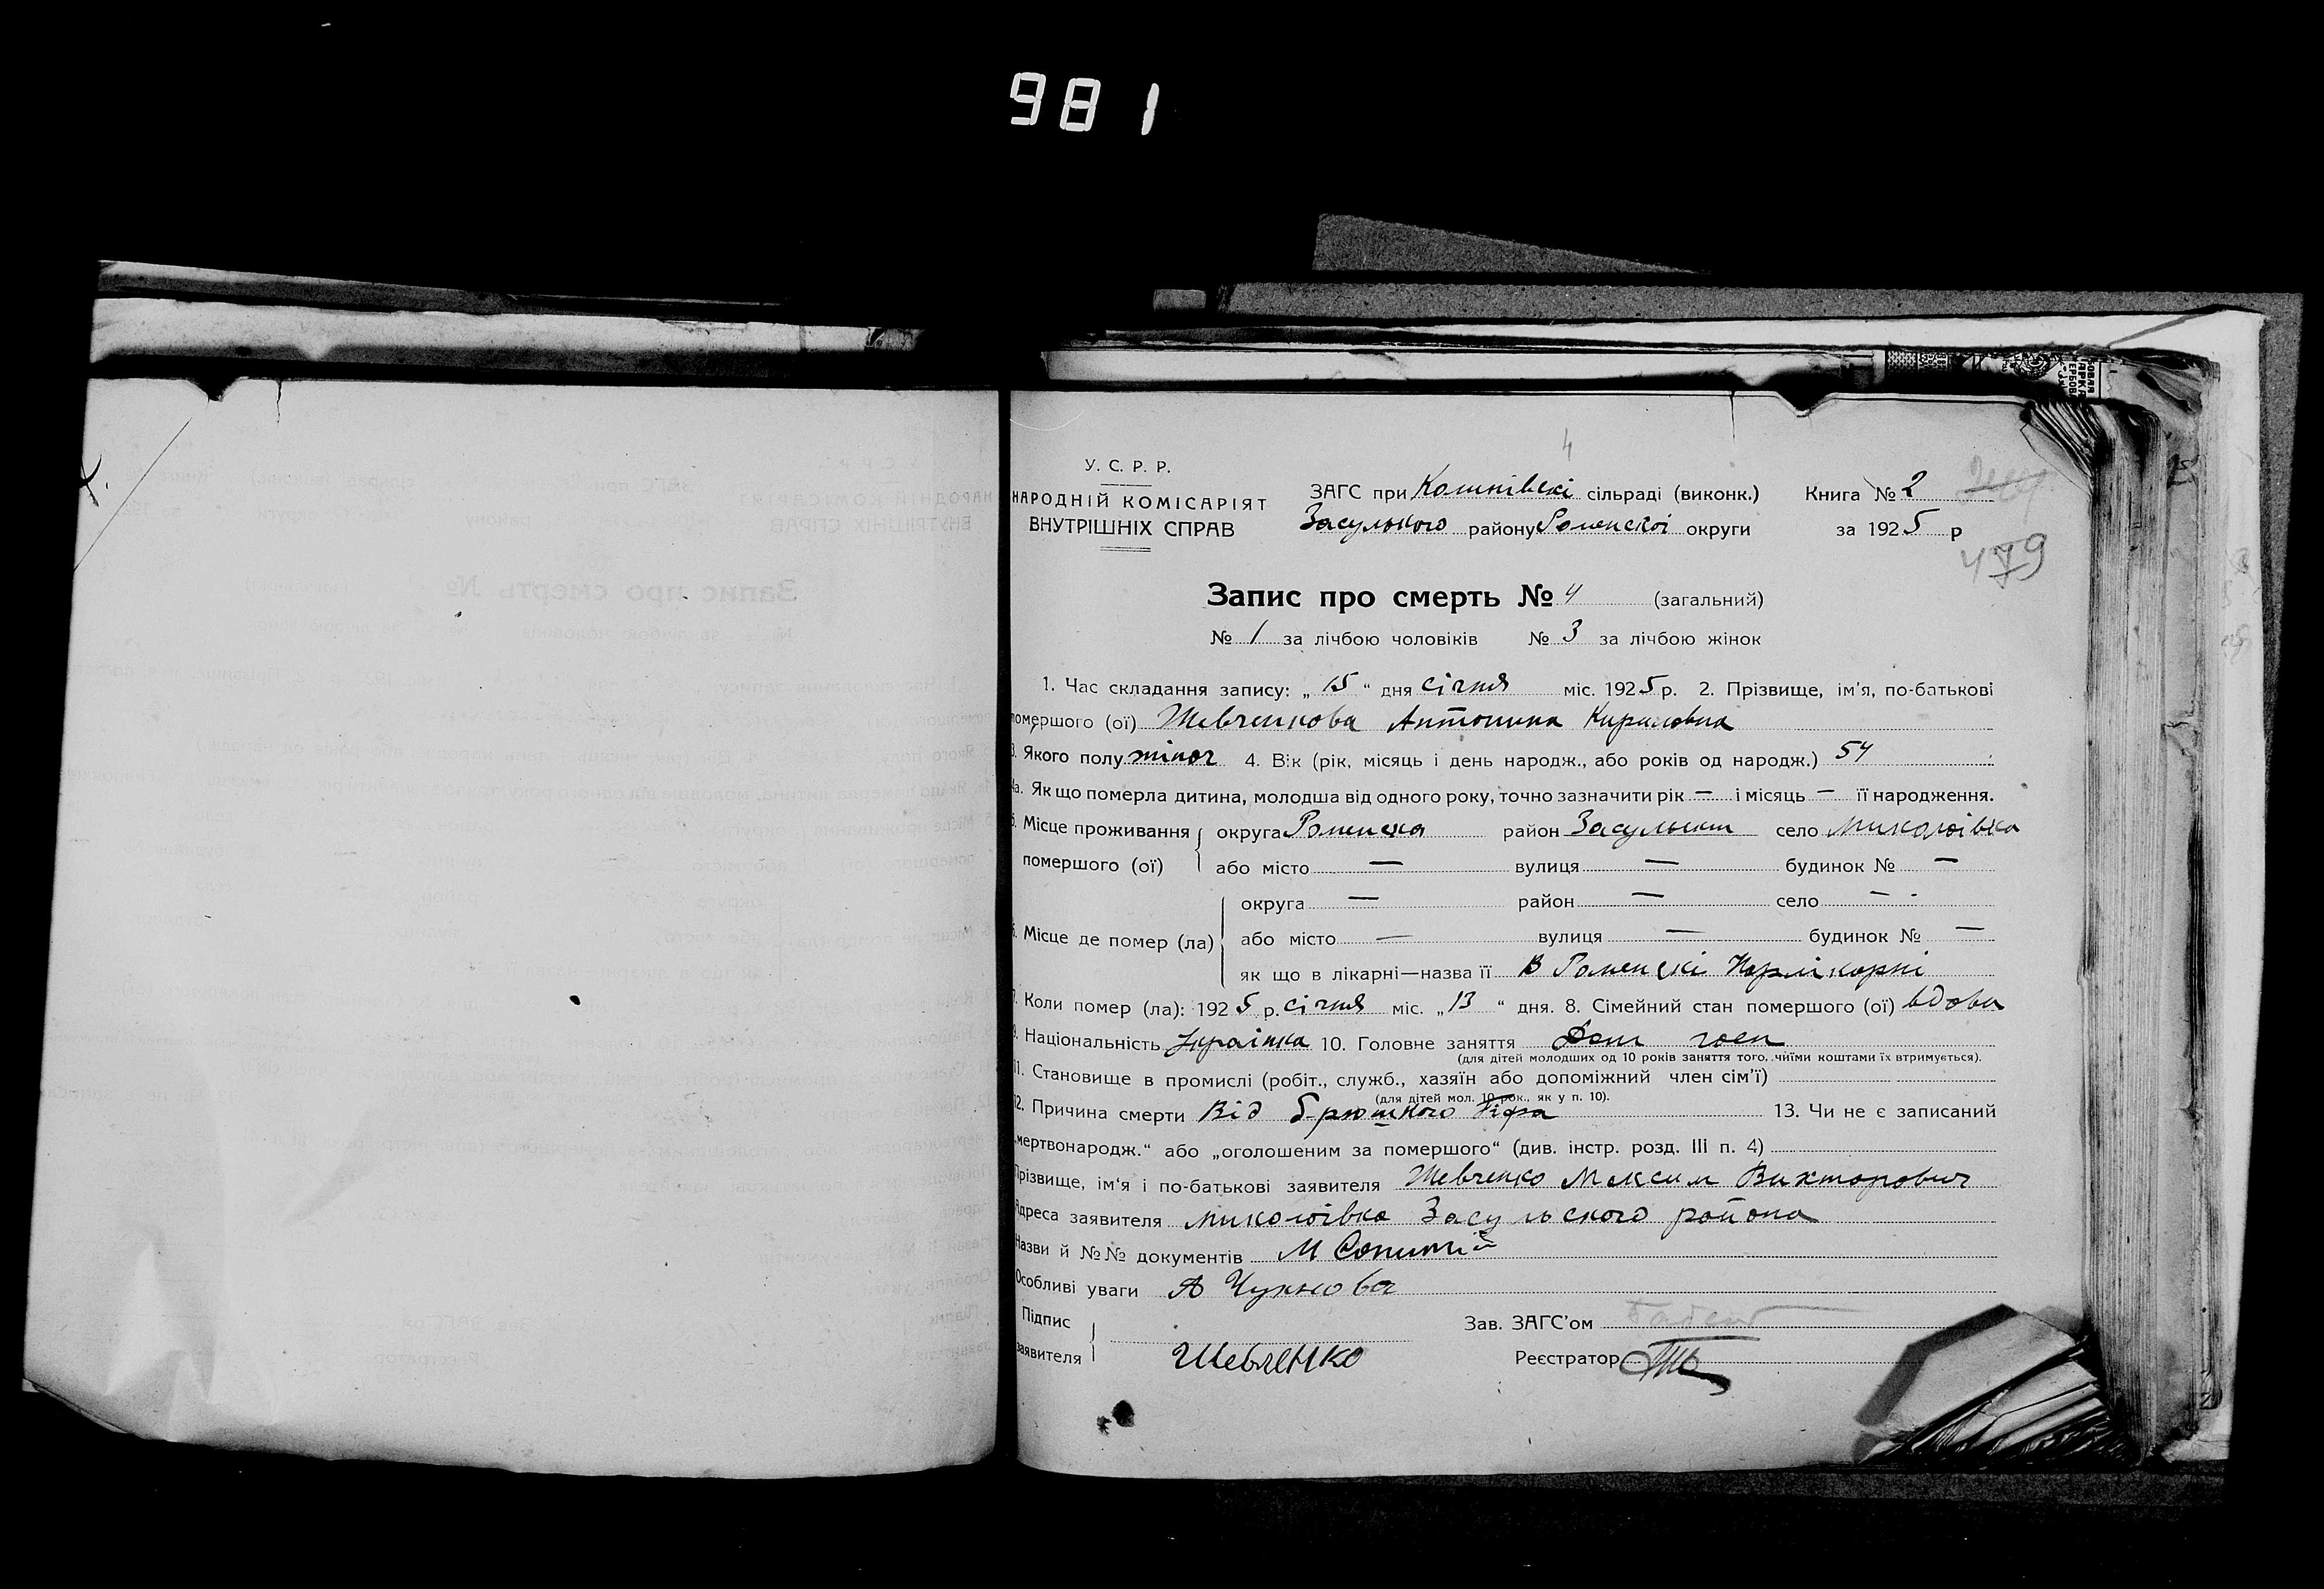 981
4
У. С. Р. Р.
НАРОДНІЙ КОМІСАРІЯТ
ВНУТРІШНІХ СПРАВ
ЗАГС при сільраді (виконк.) Книга № 2
Засульского району Роменскої округи за 1925 р
479
Запис про смерть № 4 (загальний)
№ 1 за лічбою чоловіків № 3 за лічбою жінок
1. Час складання запису: „15“ дня січня міс. 1925 р. 2. Прізвище, ім’я, по-батькові
помершого (ої) Шевченкова Антонина Кириловна
3. Якого полу жіноч 4. Вік (рік, місяць і день народж., або років од народж.) 54
4а. Як що померла дитина, молодша від одного року, точно зазначити рік — і місяць — її народження.
5. Місце проживання округа Роменска район Засульский село Миколаївка
помершого (ої) або місто — вулиця — будинок № —
округа — район — село —
6. Місце де помер (ла) або місто — вулиця — будинок № —
як що в лікарні—назва її В Роменскі
7. Коли помер (ла): 1925 р. січня міс. „13“ дня. 8. Сімейний стан помершого (ої) вдова
9. Національність Українка 10. Головне заняття
(для дітей молодших од 10 років заняття того, чиїми коштами їх втримується).
11. Становище в промислі (робіт., служб., хазяїн або допоміжний член сім’ї)
(для дітей мол. 10 рок., як у п. 10).
12. Причина смерти Від брюшного тіфа 13. Чи не є записаний
„мертвонародж.“ або „оголошеним за помершого“ (див. інстр. розд. III п. 4)
Прізвище, ім’я і по-батькові заявителя Шевченко Максим Викторович
Адреса заявителя Миколаївка Засульского района
Назви й №№ документів
Особливі уваги
Підпис
заявителя Шевченко
Зав. ЗАГС’ом
Реєстратор